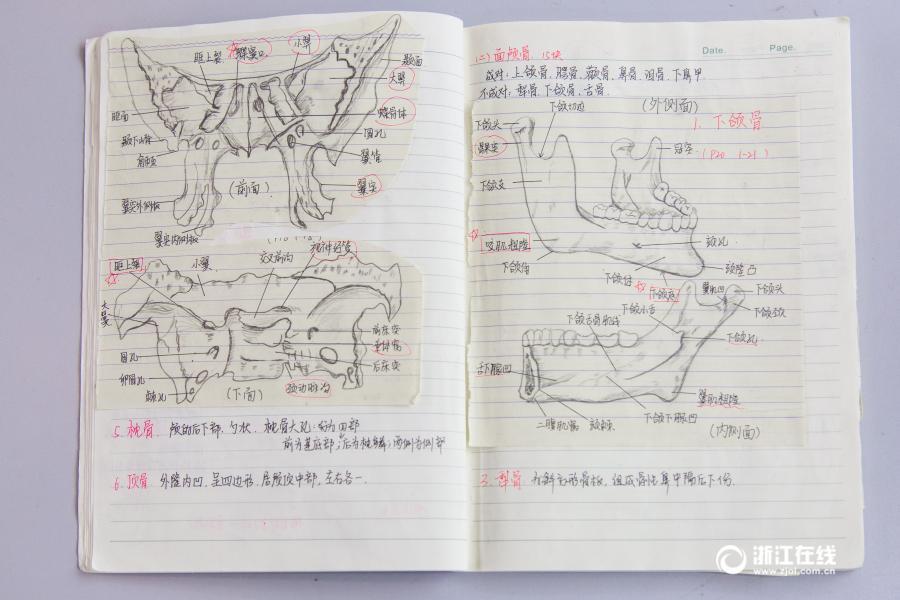 眶上裂
蝶窦口
小翼
颞面
大翼
眶面
蝶骨体
颞下嵴
圆孔
翼管
(前面)
翼突
翼突外侧板
翼突内侧板
眶上裂
小翼
交叉前沟
视神经管
大翼
圆孔
前床突
垂体窝
卵圆孔
后床突
棘孔
(下面)
颈动脉沟
5. 枕骨. 颅的后下部, 勺状. 枕骨大孔:分为四部
前为基底部;后为枕鳞;两侧为侧部
6. 顶骨 外隆内凹. 呈四边形. 居颅顶中部, 左右各一.
Date.
Page.
(二) 面颅骨. 15块
成对: 上颌骨、腭骨、颧骨、鼻骨、泪骨、下鼻甲
不成对: 犁骨、下颌骨、舌骨
(外侧面)
1. 下颌骨
(P20 1-21)
下颌切迹
下颌头
冠突
髁突
下颌支
咬肌粗隆
颏孔
下颌角
颏隆凸
下颌体
下颌底
翼肌凹
下颌头
下颌颈
下颌小舌
下颌舌骨肌线
下颌孔
舌下腺凹
翼肌粗隆
二腹肌窝
颏棘
下颌下腺凹
(内侧面)
3. 犁骨 为斜方形骨板, 组成骨性鼻中隔后下份.
浙江在线
www.zjol.com.cn